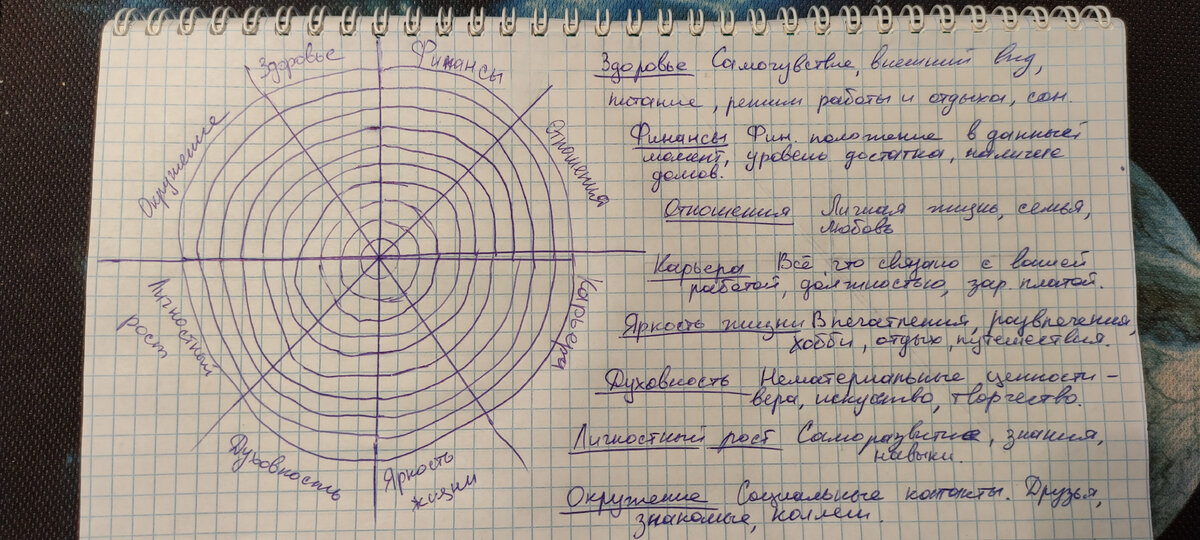 Здоровье
Финансы
Отношения
Карьера
Яркость
жизни
Духовность
Личностный
рост
Окружение
Здоровье Самочувствие, внешний вид,
питание, режим работы и отдыха, сон.
Финансы Фин. положение в данный
момент, уровень достатка, наличие
домов.
Отношения Личная жизнь, семья,
любовь
Карьера Всё, что связано с вашей
работой, должностью, зар. платой.
Яркость жизни Впечатления, развлечения,
хобби, отдых, путешествия.
Духовность Нематериальные ценности –
вера, искуство, творчество.
Личностный рост Саморазвитие, знания,
навыки.
Окружение Социальные контакты. Друзья,
знакомые, коллеги.